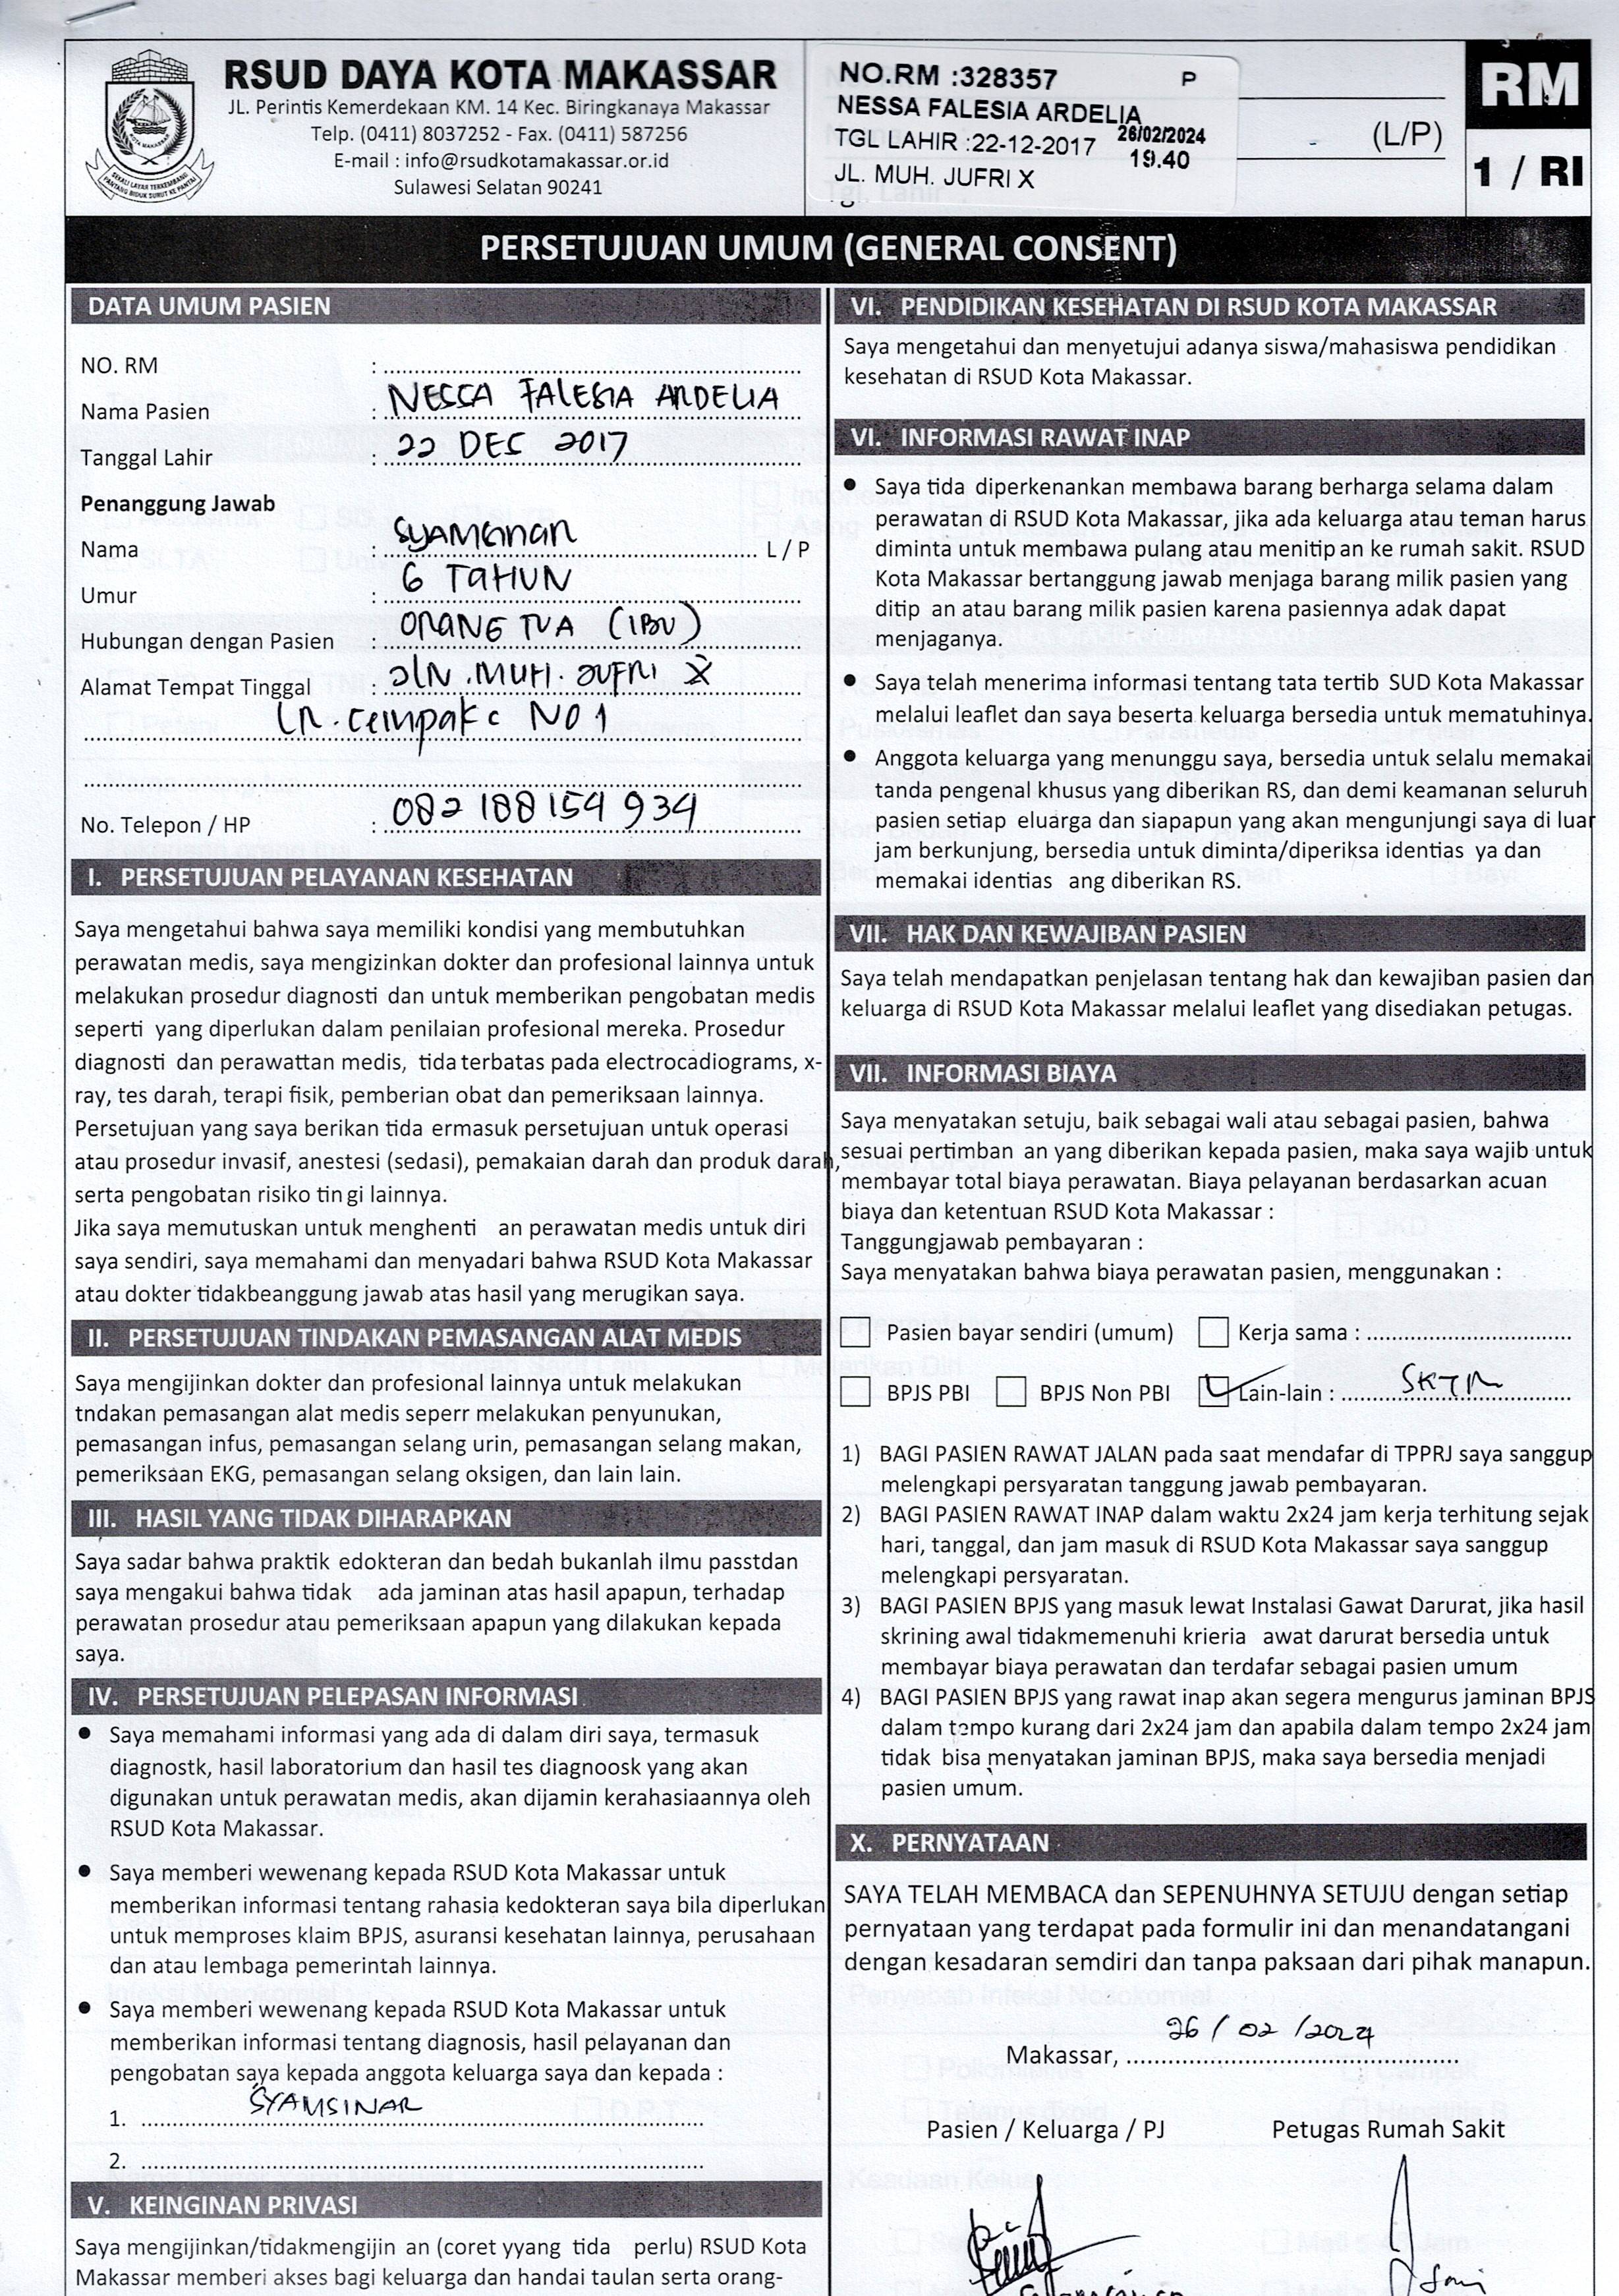 RSUD DAYA KOTA MAKASSAR
JL. Perintis Kemerdekaan KM. 14 Kec. Biringkanaya Makassar
Telp. (0411) 8037252 - Fax. (0411) 587256
E-mail : info@rsudkotamakassar.or.id
Sulawesi Selatan 90241
NO.RM :328357 P
NESSA FALESIA ARDELIA
TGL LAHIR :22-12-2017 26/02/2024
19.40
JL. MUH. JUFRI X
Tgl. Lahir
(L/P)
RM
1 / RI
PERSETUJUAN UMUM (GENERAL CONSENT)
DATA UMUM PASIEN
NO. RM :
Nama Pasien : NESSA FALESIA ARDELIA
Tanggal Lahir : 22 DES 2017
Penanggung Jawab
Nama : L / P
Umur : 6 TAHUN
Hubungan dengan Pasien : ORANG TUA (IBU)
Alamat Tempat Tinggal : JLN. MUH. JUFRI X
LR. cempaka NO 1
No. Telepon / HP : 082 188 154 934
I. PERSETUJUAN PELAYANAN KESEHATAN
Saya mengetahui bahwa saya memiliki kondisi yang membutuhkan
perawatan medis, saya mengizinkan dokter dan profesional lainnya untuk
melakukan prosedur diagnosti dan untuk memberikan pengobatan medis
seperti yang diperlukan dalam penilaian profesional mereka. Prosedur
diagnosti dan perawattan medis, tida terbatas pada electrocadiograms, x-
ray, tes darah, terapi fisik, pemberian obat dan pemeriksaan lainnya.
Persetujuan yang saya berikan tida ermasuk persetujuan untuk operasi
atau prosedur invasif, anestesi (sedasi), pemakaian darah dan produk darah,
serta pengobatan risiko tin gi lainnya.
Jika saya memutuskan untuk menghenti an perawatan medis untuk diri
saya sendiri, saya memahami dan menyadari bahwa RSUD Kota Makassar
atau dokter tidakbeanggung jawab atas hasil yang merugikan saya.
II. PERSETUJUAN TINDAKAN PEMASANGAN ALAT MEDIS
Saya mengijinkan dokter dan profesional lainnya untuk melakukan
tndakan pemasangan alat medis seperr melakukan penyunukan,
pemasangan infus, pemasangan selang urin, pemasangan selang makan,
pemeriksaan EKG, pemasangan selang oksigen, dan lain lain.
III. HASIL YANG TIDAK DIHARAPKAN
Saya sadar bahwa praktik edokteran dan bedah bukanlah ilmu passtdan
saya mengakui bahwa tidak ada jaminan atas hasil apapun, terhadap
perawatan prosedur atau pemeriksaan apapun yang dilakukan kepada
saya.
IV. PERSETUJUAN PELEPASAN INFORMASI
● Saya memahami informasi yang ada di dalam diri saya, termasuk
diagnostk, hasil laboratorium dan hasil tes diagnoosk yang akan
digunakan untuk perawatan medis, akan dijamin kerahasiaannya oleh
RSUD Kota Makassar.
● Saya memberi wewenang kepada RSUD Kota Makassar untuk
memberikan informasi tentang rahasia kedokteran saya bila diperlukan
untuk memproses klaim BPJS, asuransi kesehatan lainnya, perusahaan
dan atau lembaga pemerintah lainnya.
● Saya memberi wewenang kepada RSUD Kota Makassar untuk
memberikan informasi tentang diagnosis, hasil pelayanan dan
pengobatan saya kepada anggota keluarga saya dan kepada :
1. SYAMSINAR
2.
V. KEINGINAN PRIVASI
Saya mengijinkan/tidakmengijin an (coret yyang tida perlu) RSUD Kota
Makassar memberi akses bagi keluarga dan handai taulan serta orang-
VI. PENDIDIKAN KESEHATAN DI RSUD KOTA MAKASSAR
Saya mengetahui dan menyetujui adanya siswa/mahasiswa pendidikan
kesehatan di RSUD Kota Makassar.
VI. INFORMASI RAWAT INAP
● Saya tida diperkenankan membawa barang berharga selama dalam
perawatan di RSUD Kota Makassar, jika ada keluarga atau teman harus
diminta untuk membawa pulang atau menitip an ke rumah sakit. RSUD
Kota Makassar bertanggung jawab menjaga barang milik pasien yang
ditip an atau barang milik pasien karena pasiennya adak dapat
menjaganya.
● Saya telah menerima informasi tentang tata tertib SUD Kota Makassar
melalui leaflet dan saya beserta keluarga bersedia untuk mematuhinya.
● Anggota keluarga yang menunggu saya, bersedia untuk selalu memakai
tanda pengenal khusus yang diberikan RS, dan demi keamanan seluruh
pasien setiap eluarga dan siapapun yang akan mengunjungi saya di luar
jam berkunjung, bersedia untuk diminta/diperiksa identias ya dan
memakai identias ang diberikan RS.
VII. HAK DAN KEWAJIBAN PASIEN
Saya telah mendapatkan penjelasan tentang hak dan kewajiban pasien dan
keluarga di RSUD Kota Makassar melalui leaflet yang disediakan petugas.
VII. INFORMASI BIAYA
Saya menyatakan setuju, baik sebagai wali atau sebagai pasien, bahwa
sesuai pertimban an yang diberikan kepada pasien, maka saya wajib untuk
membayar total biaya perawatan. Biaya pelayanan berdasarkan acuan
biaya dan ketentuan RSUD Kota Makassar :
Tanggungjawab pembayaran :
Saya menyatakan bahwa biaya perawatan pasien, menggunakan :
Pasien bayar sendiri (umum) Kerja sama :
BPJS PBI BPJS Non PBI Lain-lain : SKTM
1) BAGI PASIEN RAWAT JALAN pada saat mendafar di TPPRJ saya sanggup
melengkapi persyaratan tanggung jawab pembayaran.
2) BAGI PASIEN RAWAT INAP dalam waktu 2x24 jam kerja terhitung sejak
hari, tanggal, dan jam masuk di RSUD Kota Makassar saya sanggup
melengkapi persyaratan.
3) BAGI PASIEN BPJS yang masuk lewat Instalasi Gawat Darurat, jika hasil
skrining awal tidakmemenuhi krieria awat darurat bersedia untuk
membayar biaya perawatan dan terdafar sebagai pasien umum
4) BAGI PASIEN BPJS yang rawat inap akan segera mengurus jaminan BPJS
dalam tempo kurang dari 2x24 jam dan apabila dalam tempo 2x24 jam
tidak bisa menyatakan jaminan BPJS, maka saya bersedia menjadi
pasien umum.
X. PERNYATAAN
SAYA TELAH MEMBACA dan SEPENUHNYA SETUJU dengan setiap
pernyataan yang terdapat pada formulir ini dan menandatangani
dengan kesadaran semdiri dan tanpa paksaan dari pihak manapun.
Makassar, 26 / 02 / 2024
Pasien / Keluarga / PJ Petugas Rumah Sakit